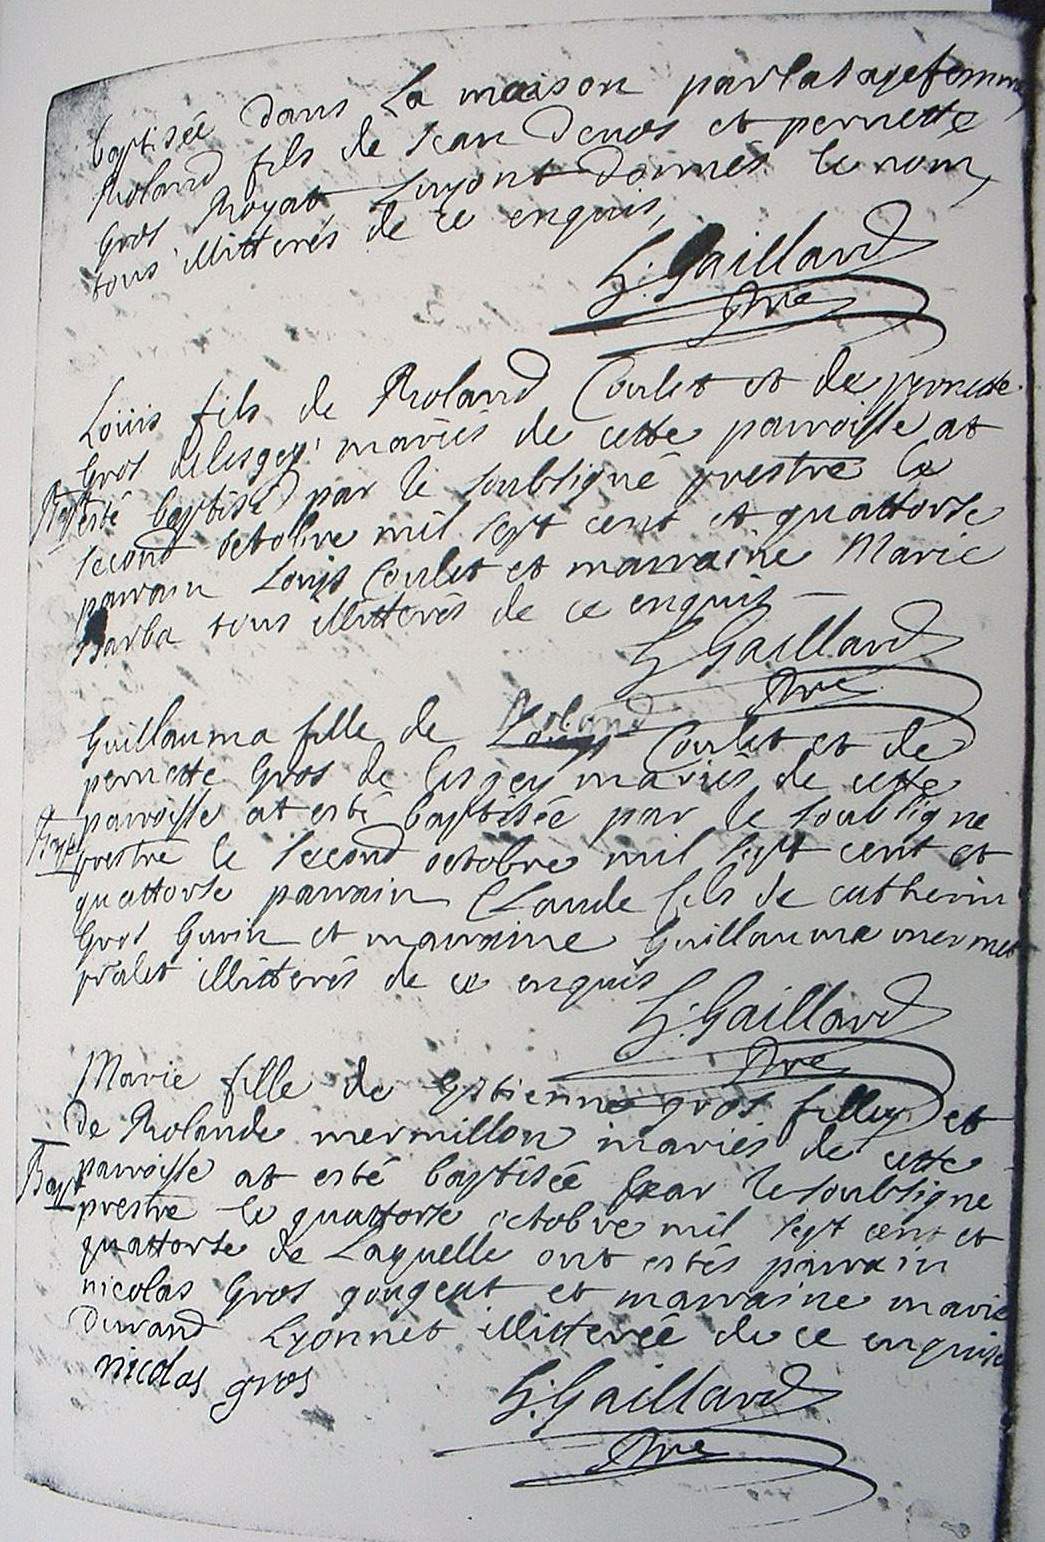 baptisée dans La maison par la sagefemme
Roland fils de Jean Denos et pernette
Gros Royat Luy ont donnés le nom
tous illitterés de ce enquis,
G. Gaillard
Pre
Louis fils de Roland Coulet et de pernette
Gros delesgey mariés de cette parroisse at
Bapt esté baptisé par le soubsigné prestre le
second octobre mil sept cent et quattorse
parrain Louis Coulet et marraine Marie
Barba tous illitterés de ce enquis
G Gaillard
Pre
Guillauma fille de Roland Coulet et de
pernette Gros de lesgey mariés de cette
parroisse at esté baptisée par le soubsigne
prestre le second octobre mil sept cent et
quattorse parrain Claude fils de catherin
Gros Gurin et marraine Guillauma mermet
pralet illitterés de ce enquis
G. Gaillard
Pre
Marie fille de Estienne gros filley et
de Rolande mermillon mariés de cette
Bapt parroisse at esté baptisée par le soubsigne
prestre le quattorse octobre mil sept cent et
quattorse de Laquelle ont estés parrain
nicolas Gros gougeut et marraine marie
Durand Lyonnet illitterée de ce enquise
nicolas gros
G. Gaillard
Pre